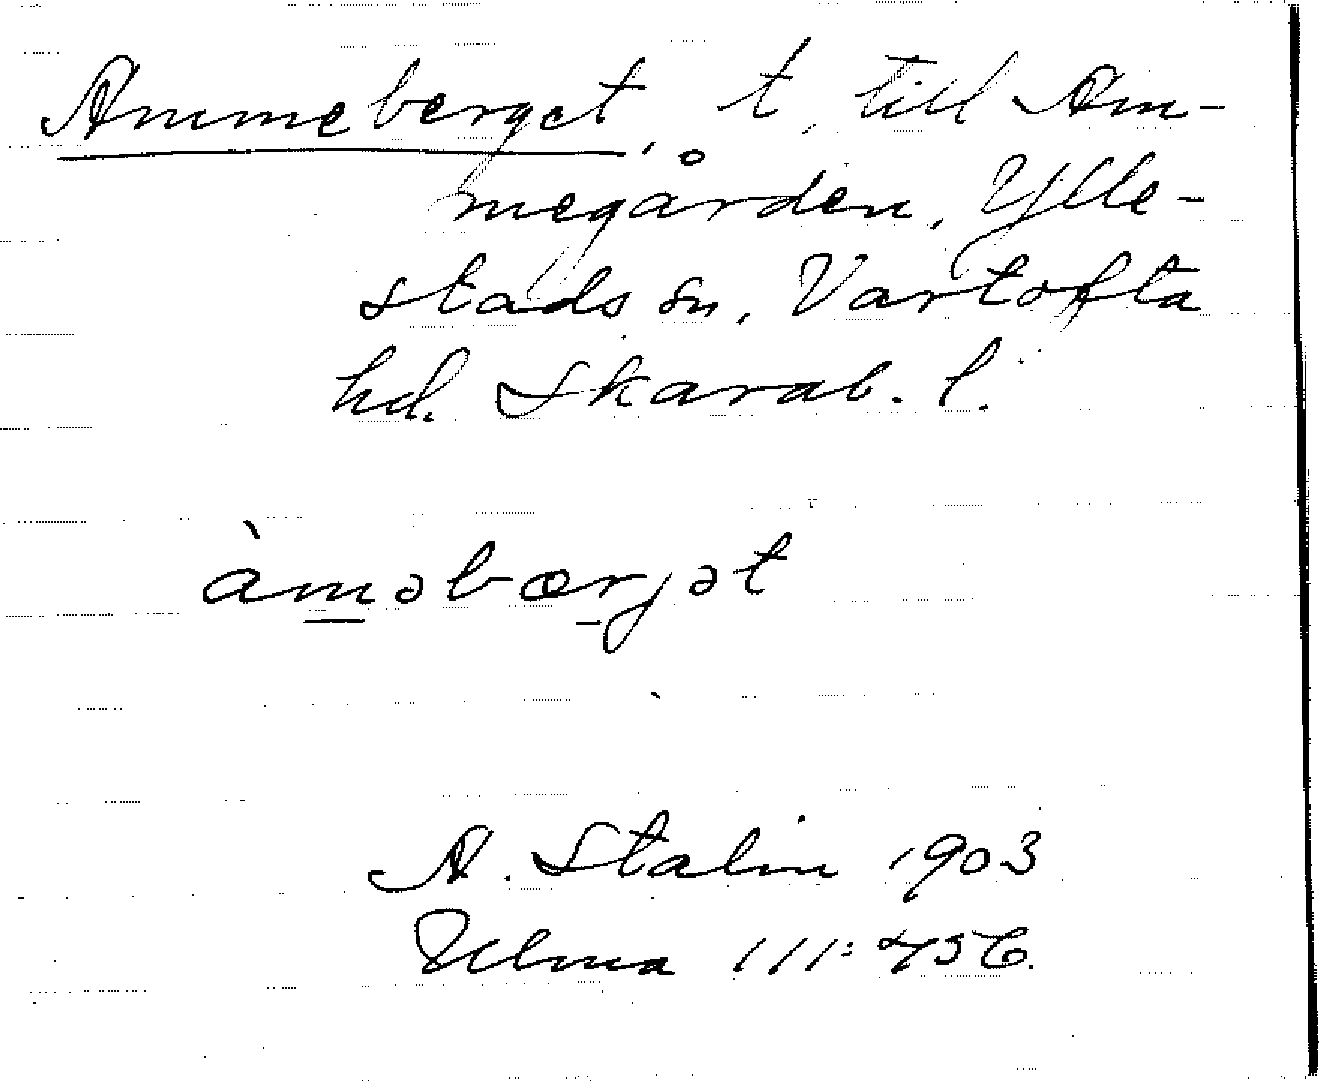 Ammeberget, t. till Am-
megården, Ylle-
stads sn, Vartofta
hd. Skarab. l.
àməbærjət
A. Stalin 1903
Ulma 111:456.